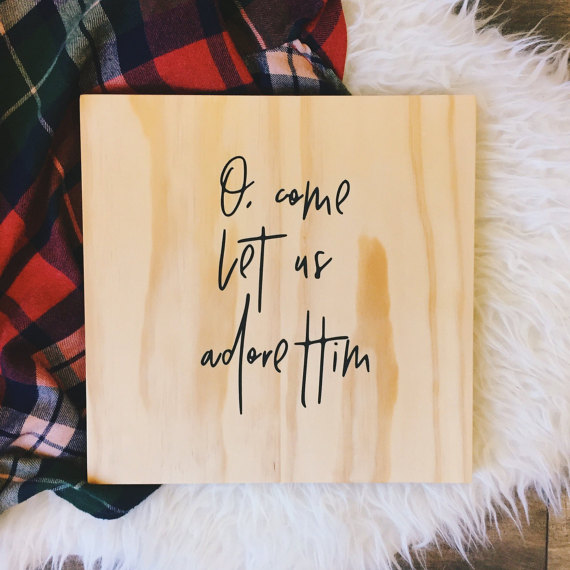 O. come
let us
adore Him